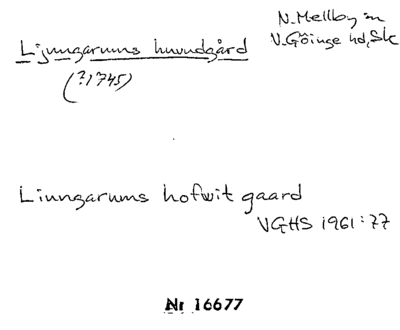 Ljungarums huvudgård
(?1745)
N. Mellby sn
V. Göinge hd, Sk
Liungarums hofwit gaard
VGHS 1961:77
Nr 16677